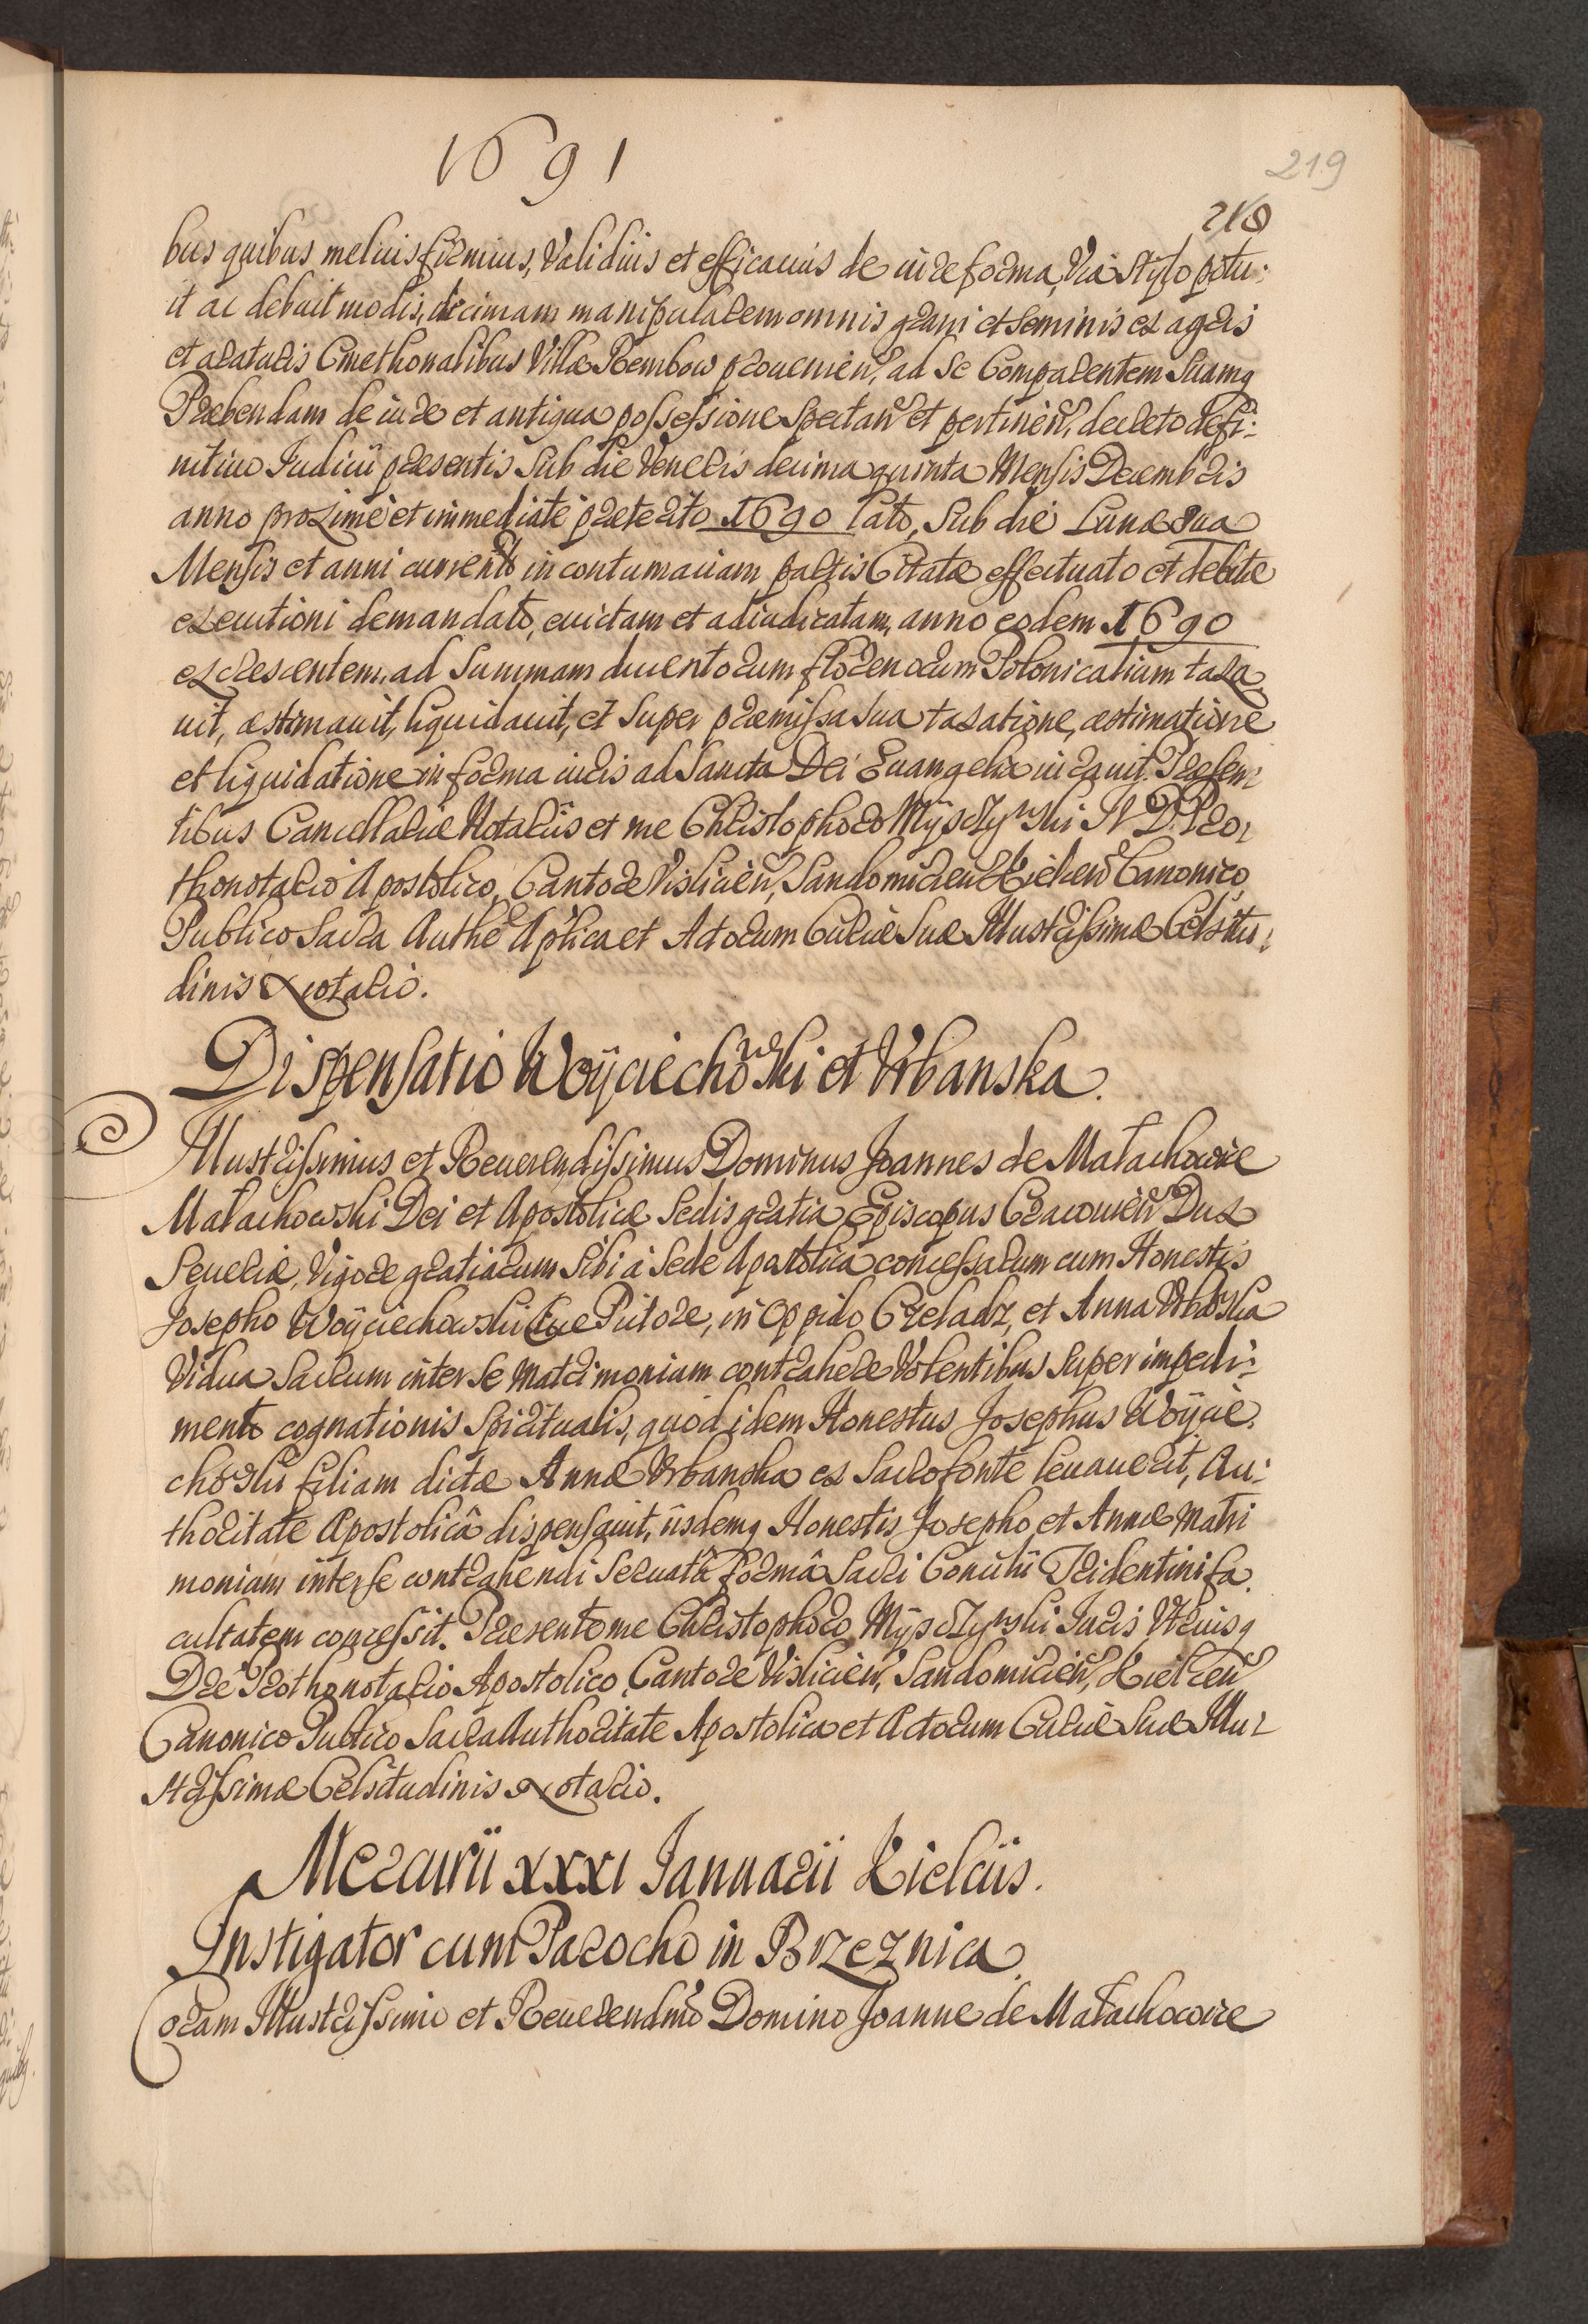 1691
219
218
bus quibus melius firmius, Validius et efficacius de iure forma, Via Stylo potu:
it ac debuit modis, decimam manipularem omnis grani et seminis ex agris
et araturis Cmethonalibus Villæ Rembow prouenien, ad se Comparentem Suamq
Præbendam de iure et antiqua possessione Spectan et pertinen, decreto defi:
nitiuo Iudicii præsentis Sub die Veneris decima quinta Mensis Decembris
anno proxime et immediate præterito 1690 lato, Sub die Lunæ
Mensis et anni currentis in contumaciam partis Citatæ effectuato et debitæ
executioni demandato, euictam et adiudicatam, anno eodem 1690
excrescentem, ad Summam ducentorum florenorum Polonicalium taxa
uit, æstimauit, liquidauit, et Super præmissa sua taxatione, æstimatione
et liquidatione in forma iuris ad Sancta Dei Euangelia iurauit. Præsen:
tibus Cancellariæ Notariis et me Christophoro Mysczynski I V D. Pro:
thonotario Apostolico, Cantore Vislicien, Sandomirien Kielcen Canonico,
Publico Sacra Authe Aplica et Actorum Curiæ Suæ Illustrissimæ Celsitu:
dinis Notario.
Dispensatio Woÿciechowski et Vrbanska.
Illustrissimus et Reuerendissimus Dominus Joannes de Małachowice
Małachowski Dei et Apostolicæ Sedis gratia Episcopus Cracouien Dux
Seueriæ, Vigore gratiarum Sibi a Sede Apostolica concessarum cum Honestis
Josepho Woÿciechowski Pictore, in Oppido Czeladz, et Anna Vrbańska
Vidua Sacrum inter Se Matrimonium contrahere Volentibus Super impedi:
mento cognationis Spiritualis, quod idem Honestus Josephus Woÿcie:
chowski filiam dictæ Annæ Vrbanska ex Sacro fonte leuauerit, Au:
thoritate Apostolicâ dispensauit, iisdemq Honestis Josepho et Annæ Matri
monium inter se contrahendi Seruatâ formâ Sacri Concilii Tridentini fa:
cultatem concessit. Præsente me Christophoro Mysczynski Iuris Vtriusq
Dre Prothonotario Apostolico, Cantore Vislicien, Sandomirien, Kielcen
Canonico Publico Sacra Authoritate Apostolica et Actorum Curiæ Suæ Illu:
strissimæ Celsitudinis Notario.
Mercurii XXXI Januarii Kielciis.
Instigator cum Parocho in Brzeznica.
Coram Illustrissimo et Reuerendmo Domino Joanne de Małachowice